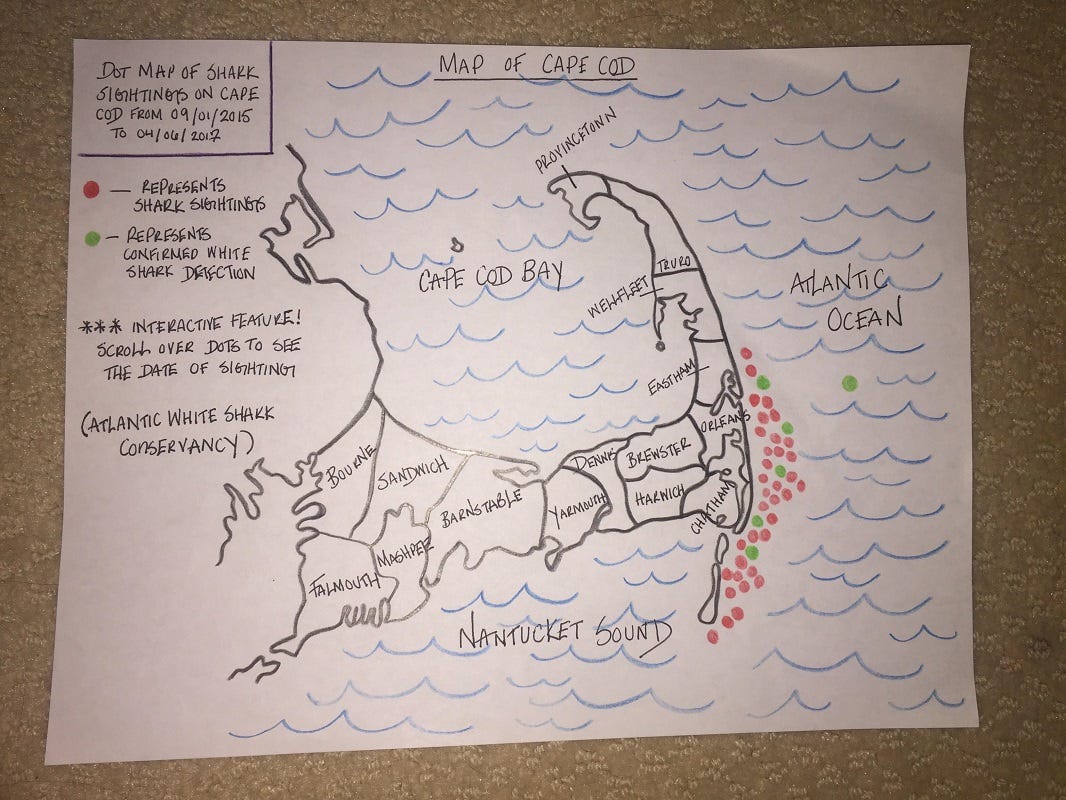 DOT MAP OF SHARK
SIGHTINGS ON CAPE
COD FROM 09/01/2015
TO 04/06/2017
MAP OF CAPE COD
— REPRESENTS
SHARK SIGHTINGS
— REPRESENTS
CONFIRMED WHITE
SHARK DETECTION
*** INTERACTIVE FEATURE!
SCROLL OVER DOTS TO SEE
THE DATE OF SIGHTING
(ATLANTIC WHITE SHARK
CONSERVANCY)
PROVINCETOWN
CAPE COD BAY
TRURO
WELLFLEET
ATLANTIC
OCEAN
EASTHAM
ORLEANS
BOURNE
SANDWICH
DENNIS
BREWSTER
BARNSTABLE
YARMOUTH
HARWICH
CHATHAM
MASHPEE
FALMOUTH
NANTUCKET SOUND